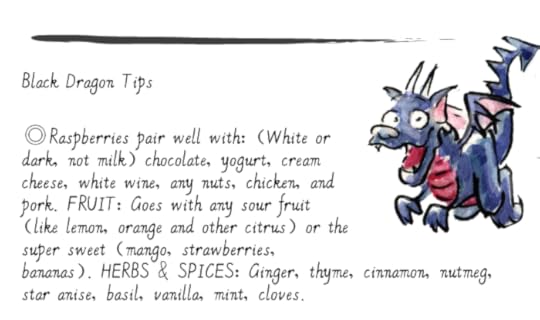 Black Dragon Tips
◎Raspberries pair well with: (White or
dark, not milk) chocolate, yogurt, cream
cheese, white wine, any nuts, chicken, and
pork. FRUIT: Goes with any sour fruit
(like lemon, orange and other citrus) or the
super sweet (mango, strawberries,
bananas). HERBS & SPICES: Ginger, thyme, cinnamon, nutmeg,
star anise, basil, vanilla, mint, cloves.